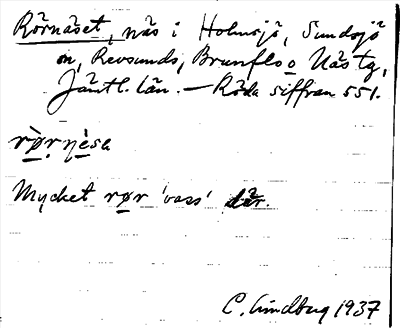 Rörnäset, näs i Holmsjö, Sundsjö
sn, Revsunds, Brunflo o Näs tg,
Jämtl. län. – Röda siffran 551.
rø̀r ṇèsa
Mycket rør 'vass' där.
C. Lindberg 1937